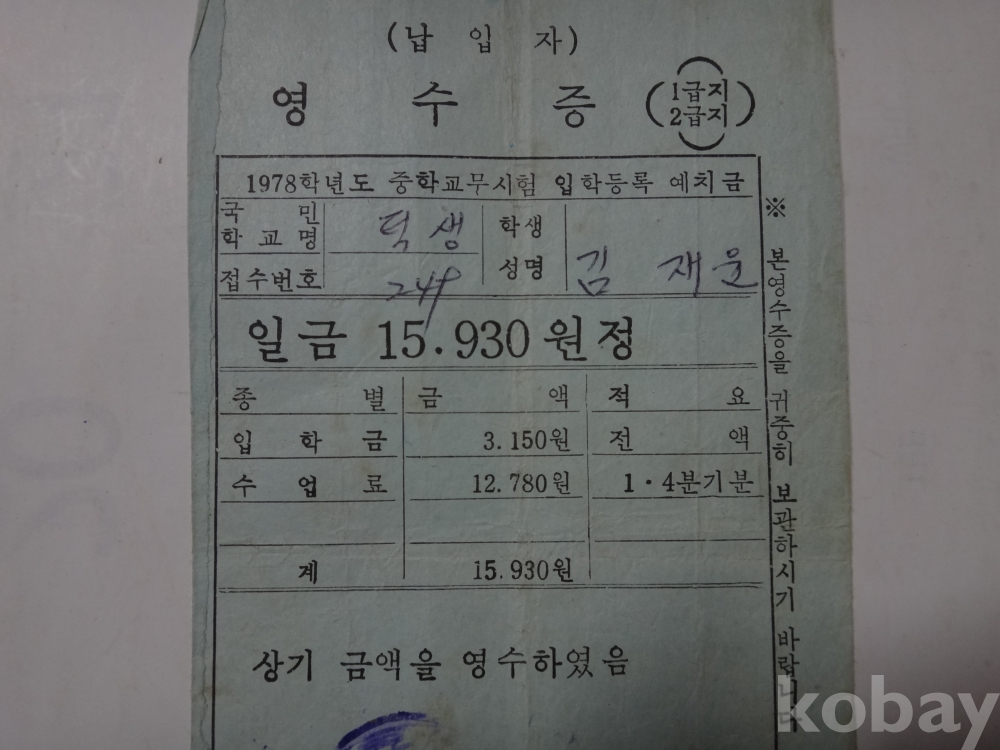 (납 입 자)
영 수 증 (1급지 2급지)
1978학년도 중학교무시험 입학등록 예치금
국 민 학교명 덕생 학생 성명 김 재윤
접수번호 249
일금 15.930원정
종 별 금 액 적 요
입 학 금 3.150원 전 액
수 업 료 12.780원 1·4분기분
계 15.930원
상기 금액을 영수하였음
※ 본영수증을 귀중히 보관하시기 바랍니다
kobay